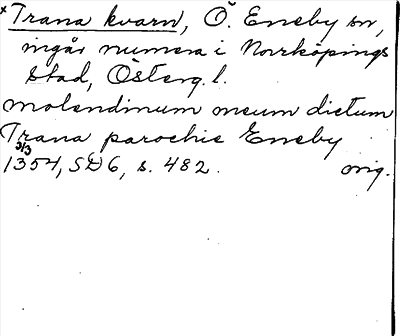 ×Trana kvarn, Ö. Eneby sn,
ingår numera i Norrköpings
stad, Österg. l.
molendinum meum dictum
Trana parochie Eneby
3/3
1354, SD 6, s. 482. orig.